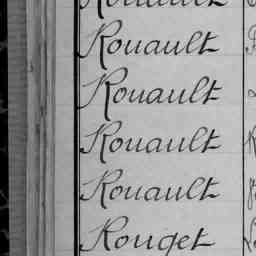 Rouault
Rouault
Rouault
Rouault
Rouault
Rouget